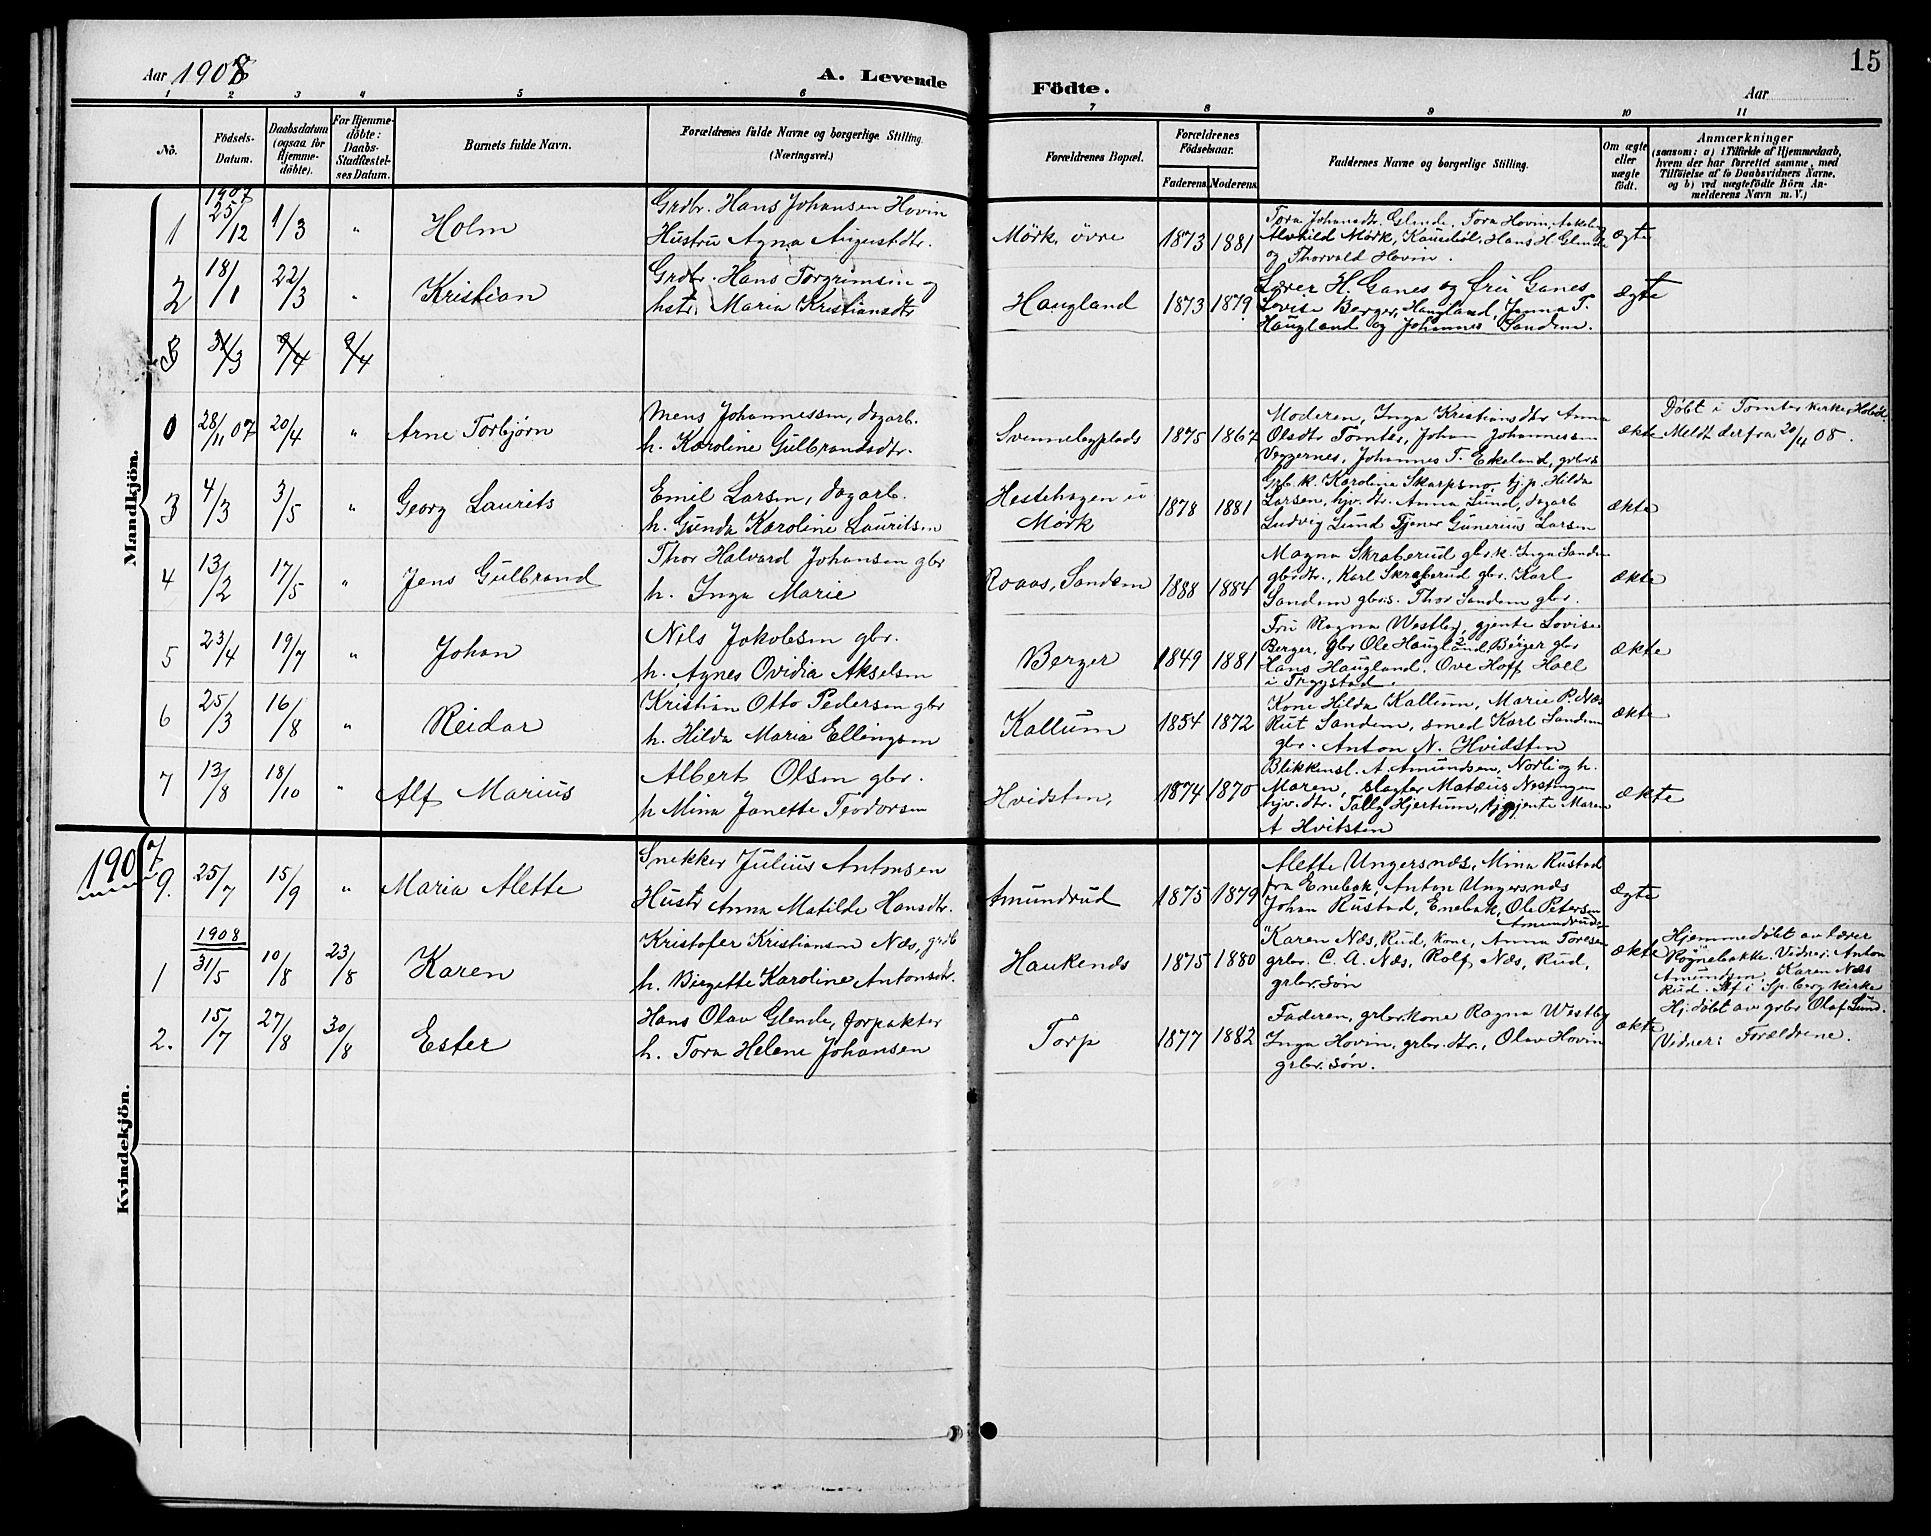 15
Aar 1908
A. Levende Födte.
Aar
1 2 3 4 5 6 7 8 9 10 11
No.
Födsels-Datum.
Daabsdatum (ogsaa for Hjemmedöbte).
For Hjemmedöbte: Daabs-Stadfæstelses Datum.
Barnets fulde Navn.
Forældrenes fulde Navne og borgerlige Stilling. (Næringsvei.)
Forældrenes Bopæl.
Forældrenes Födselsaar.
Faderens. Moderens.
Faddernes Navne og borgerlige Stilling.
Om ægte eller uægte födt.
Anmærkninger
(saasom: a) i Tilfælde af Hjemmedaab, hvem der har forrettet samme, med Tilföielse af to Daabsvidners Navne, og b) ved uægtefödte Börn Anmelderens Navn m. V.)
Mandkjön.
1 1907 25/12 1/3 " Holm
Grdbr. Hans Johansen Hovin
Hustru Agna Augustdtr.
Mörk, övre 1873 1881
Tora Johansdtr. Glende. Tora Hovin,
Alvhild Mörk, Hans H. Glende
og Thorvald Hovin.
ægte
2 18/1 22/3 " Kristian
Grdbr. Hans Torgrimsen og
hstr. Maria Kristiansdtr
Haugland 1873 1879
Lærer H. Ganes og Fru Ganes
Lovise Berger, Haugland, Janna T.
Haugland og Johannes Sandem.
ægte
3 31/3 9/4 9/4
0 28/11 07 20/4 " Arne Torbjørn
Mens Johannessen, dagarb.
h. Karoline Gulbrandsdtr.
Svennebyplads 1875 1867
Moderen, Inga Kristiansdtr Anna
Olsdtr Tomter, Johan Johannessen
Veggernes, Johannes T. Ekeland, grbrs
ækte
Døbt i Tomter kirke, Hobøl
Meldt derfra 20/4 08.
3 4/3 3/5 " Georg Laurits
Emil Larsen, dagarb.
h. Gunda Karoline Lauritsen
Hestehagen u
Mörk 1878 1881
Grb. k. Karolina Skarpsno tj.p. Hilda
Larsen, hjv. dtr. Anna Lund, dagarb
Ludvig Lund Tjener Gunerius Larsen
ækte
4 13/2 17/5 " Jens Gulbrand
Thor Halvard Johansen gbr
h. Inga Marie
Roaas, Sandem 1888 1884
Magna Skraberud gbr.k. Inga Sandem
gbrdtr., Karl Skraberud gbr. Karl
Sandem gbr.s. Thor Sandem gbr.
ækte
5 23/4 19/7 " Johan
Nils Jakobsen gbr.
h. Agnes Ovidia Akselsen
Berger 1849 1881
Fru Ragna Westby, gjente Lovise
Berger, gbr Ole Haugland, Berger gbr
Hans Haugland. Ove Hoff Holl
i Trygstad.
ækte
6 25/3 16/8 " Reidar
Kristian Otto Pedersen gbr
h. Hilda Maria Ellingsen
Kallum 1854 1872
Kone Hilda Kallum, Marie P. Næs
Rut Sandem, smed Karl Sandem
gbr. Anton N. Hvidsten
ækte
7 13/8 18/10 " Alf Marius
Albert Olsen gbr.
h Mina Janette Teodorsen
Hvidsten, 1874 1870
Blikkensl. A. Amundsen, Norli og h.
Maren, slagter Matæus Næstingen
hjv. dtr. Tally Hjertum, tj.gjente Maren
A Hvitsten
ækte
Kvindekjön.
1907
9. 25/7 15/9 " Maria Alette
Snekker Julius Antonsen
Hustr Anna Matilde Hansdtr.
Amundrud 1875 1879
Alette Ungersnæs, Mina Rustad
fra Enebak, Anton Ungersnæs
Johan Rustad, Enebak, Ole Petersen
Amundrud
ægte
1908
1 31/5 10/8 23/8 Karen
Kristofer Kristiansen Næs, grdb
h. Birgette Karoline Antonsdtr.
Haukenæs 1875 1880
Karen Næs, Rud, kone, Anna Toresen
grbr. C. A. Næs, Rolf Næs, Rud,
grbr. søn
ækte
Hjemmedøbt av lærer
Rognebakke. Vidner: Anton
Amundsen, Karen Næs
Rud. Stf i Sp.berg kirke
2. 15/7 27/8 30/8 Ester
Hans Olav Glende, forpakter
h. Tora Helene Johansen
Torp 1877 1882
Faderen, grbr.kone Ragna Westby
Inga Hovin, grbr. dtr., Olav Hovin
grbr. søn.
ækte
Hj. døbt av grbr Olaf Lund.
Vidner: Forældrene.